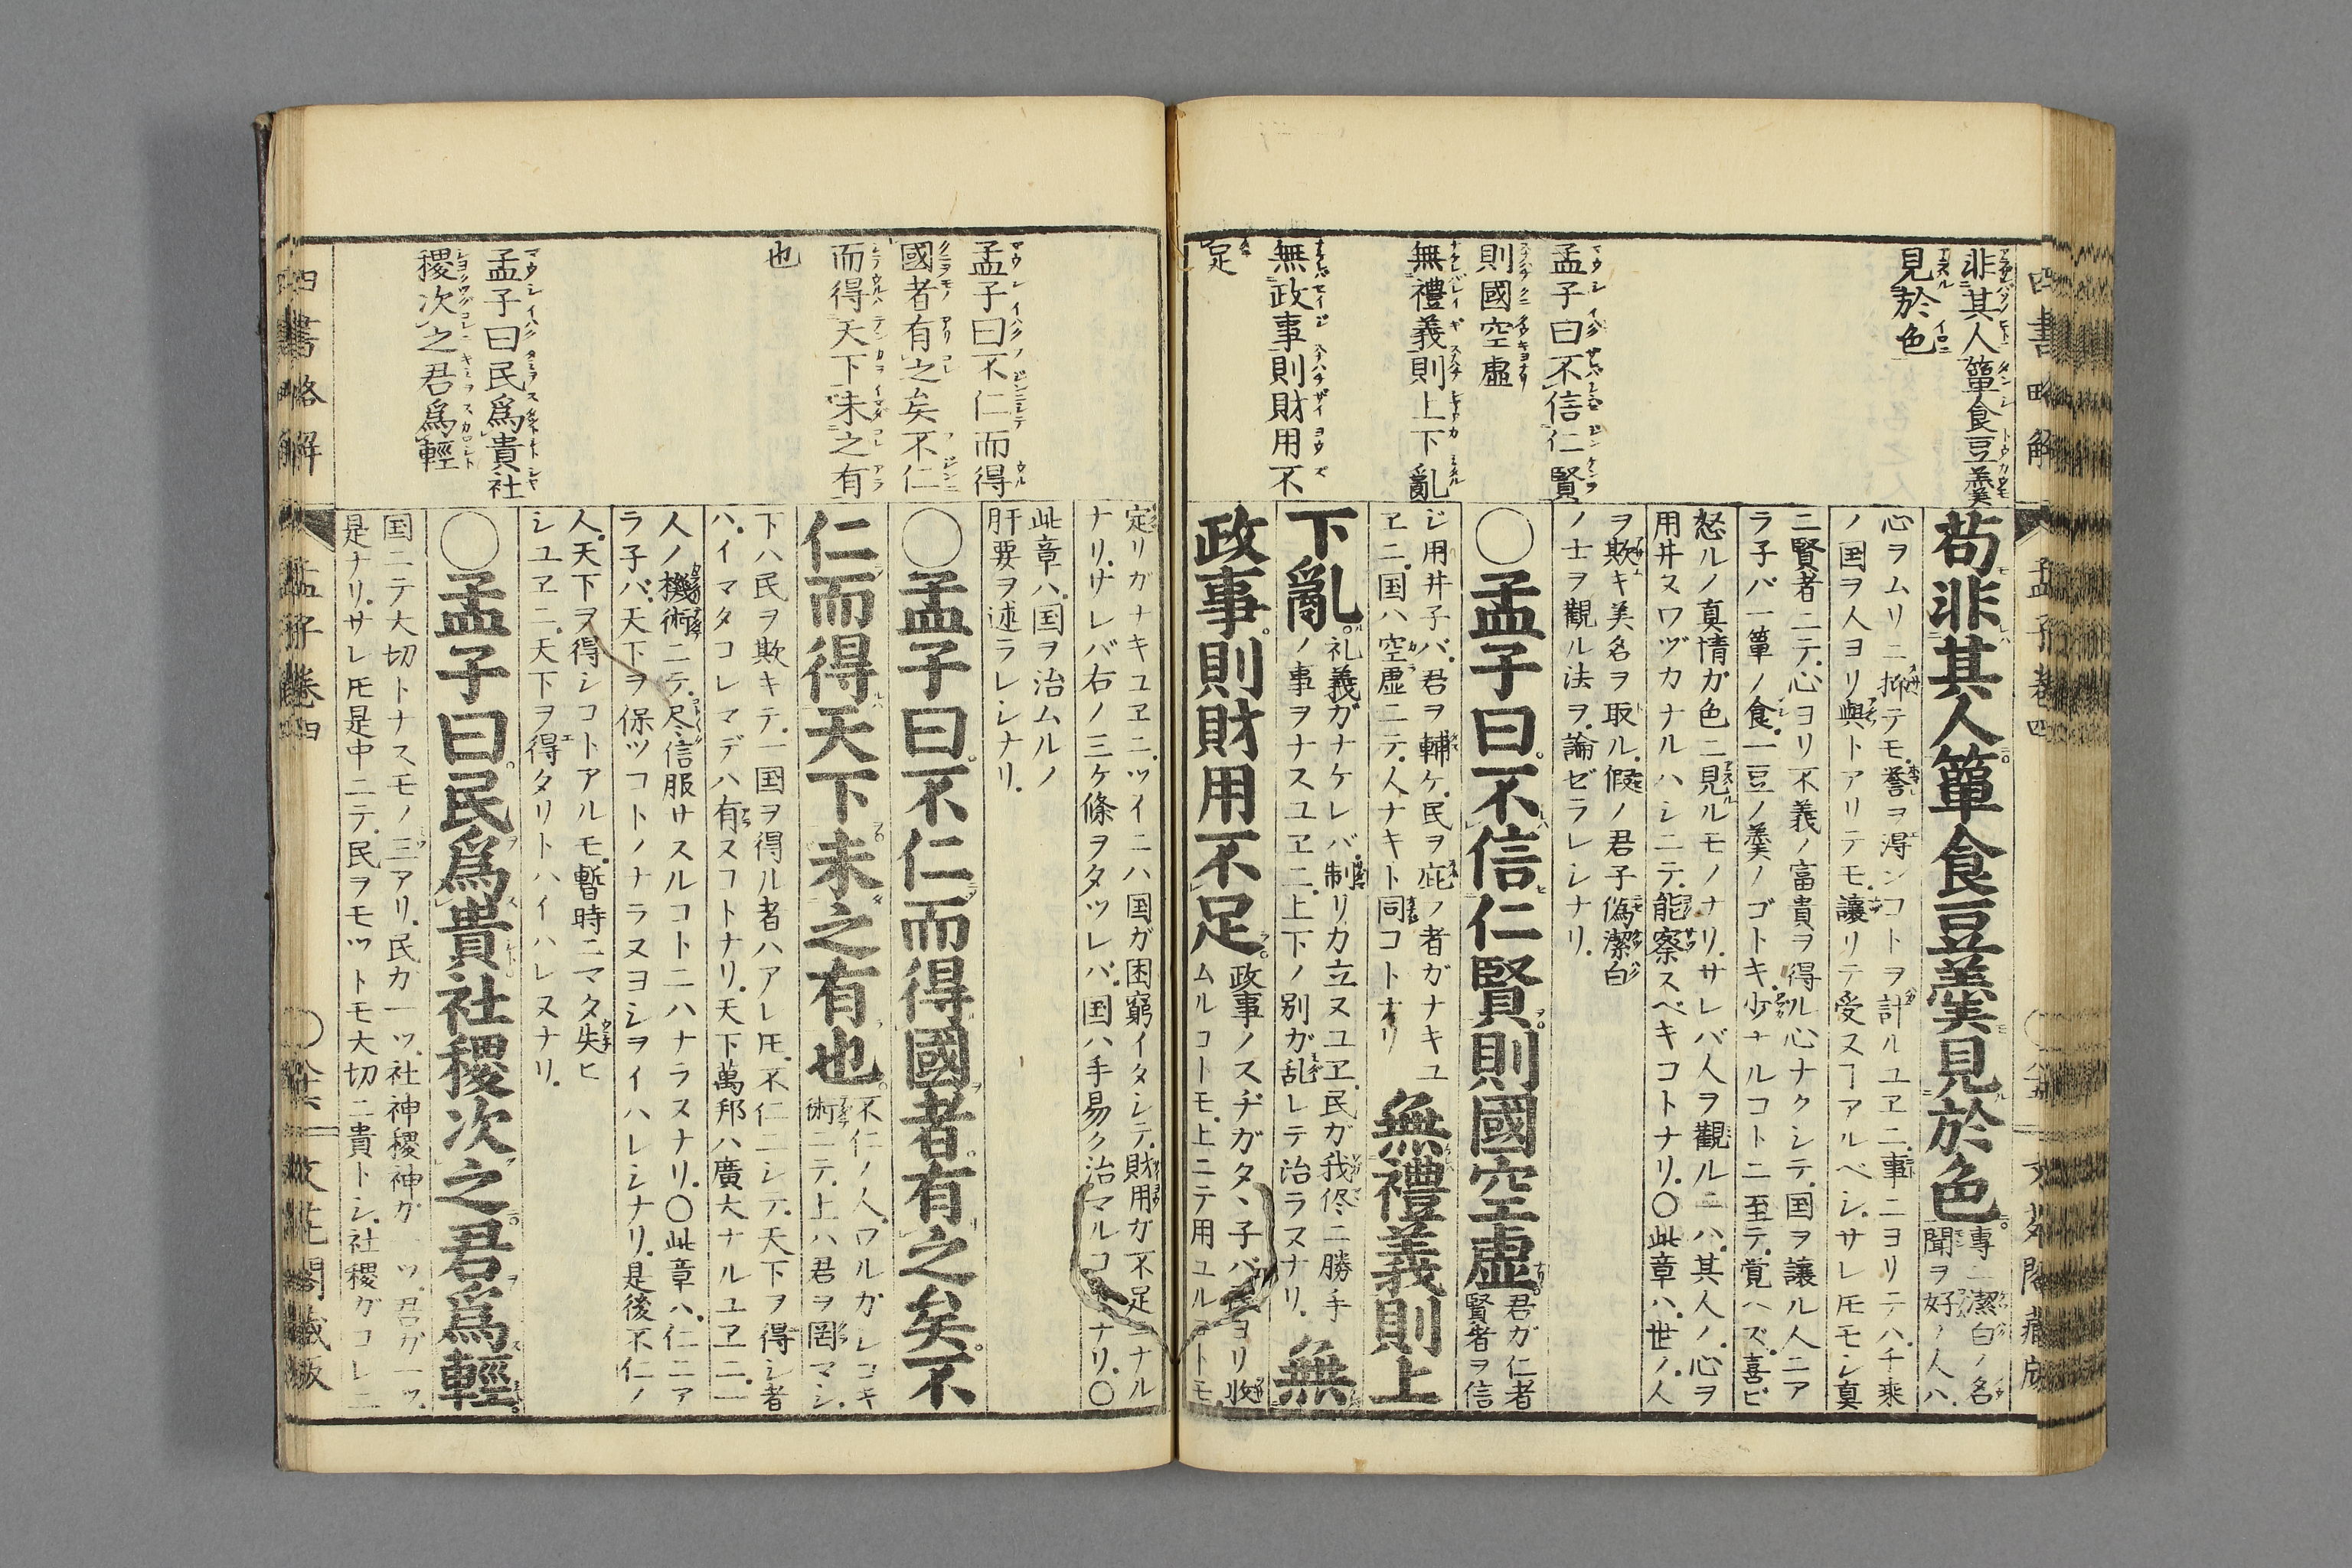 四書略解
孟子巻四
非其人簞食豆羹
見於色
孟子曰不信仁賢
則國空虛
無禮義則上下亂
無政事則財用不
足
苟非其人簞食豆羹見於色
專ニ潔白ノ名
聞ヲ好ノ人ハ
心ヲムリニ抑テモ誉ヲ得ンコトヲ計ルユヱニ事ニヨリテハ千乘
ノ国ヲ人ヨリ與トアリテモ讓リテ受ヌヿアルベシサレ𪜈モシ真
ニ賢者ニテ心ヨリ不義ノ富貴ヲ得ル心ナクシテ国ヲ讓ル人ニア
ラ子バ一簞ノ食一豆ノ羹ノゴトキ少ナルコトニ至テ覚ハズ喜ビ
怒ルノ真情ガ色ニ見ルモノナリサレバ人ヲ觀ルニハ其人ノ心ヲ
用井ヌワヅカナルハシニテ能察スベキコトナリ〇此章ハ世ノ人
ヲ欺キ美名ヲ取ル假ノ君子偽潔白
ノ士ヲ觀ル法ヲ論ゼラレシナリ
〇孟子曰不信仁賢則國空虛
君ガ仁者
賢者ヲ信
ジ用井子バ君ヲ輔ケ民ヲ庇ノ者ガナキユ
ヱニ国ハ空虛ニテ人ナキト同コトナリ
無禮義則上
下亂
礼義ガナケレバ制リカ立ヌユヱ民ガ我侭ニ勝手
ノ事ヲナスユヱニ上下ノ別ガ乱レテ治ラヌナリ
無
政事則財用不足
政事ノスヂガタヽ子バ民ヨリ收
ムルコトモ上ニテ用ユルコトモ
孟子曰不仁而得
國者有之矣不仁
而得天下未之有
也
孟子曰民爲貴社
稷次之君爲輕
定リガナキユヱニツイニハ国ガ困窮イタシテ財用ガ不足ニナル
ナリサレバ右ノ三ケ條ヲタツレバ国ハ手易ク治マルコトナリ〇
此章ハ国ヲ治ムルノ
肝要ヲ述ラレシナリ
〇孟子曰不仁而得國者有之矣不
仁而得天下未之有也
不仁ノ人ワルガレコキ
術ニテ上ハ君ヲ罔マシ
下ハ民ヲ欺キテ一国ヲ得ル者ハアレ𪜈不仁ニシテ天下ヲ得シ者
ハイマタコレマデハ有ヌコトナリ天下萬邦ハ廣大ナルユヱニ一
人ノ機術ニテ尽信服サスルコトニハナラヌナリ〇此章ハ仁ニア
ラ子バ天下ヲ保ツコトノナラヌヨシヲイハレシナリ是後不仁ノ
人天下ヲ得シコトアルモ暫時ニマタ失ヒ
シユヱニ天下ヲ得タリトハイハレヌナリ
〇孟子曰民爲貴社稷次之君爲輕
国ニテ大切トナスモノ三アリ民カ一ツ社神稷神ガ一ツ君ガ一ツ
是ナリサレ𪜈是中ニテ民ヲモツトモ大切ニ貴トシ社稷ガコレニ
四書略解
孟子巻四